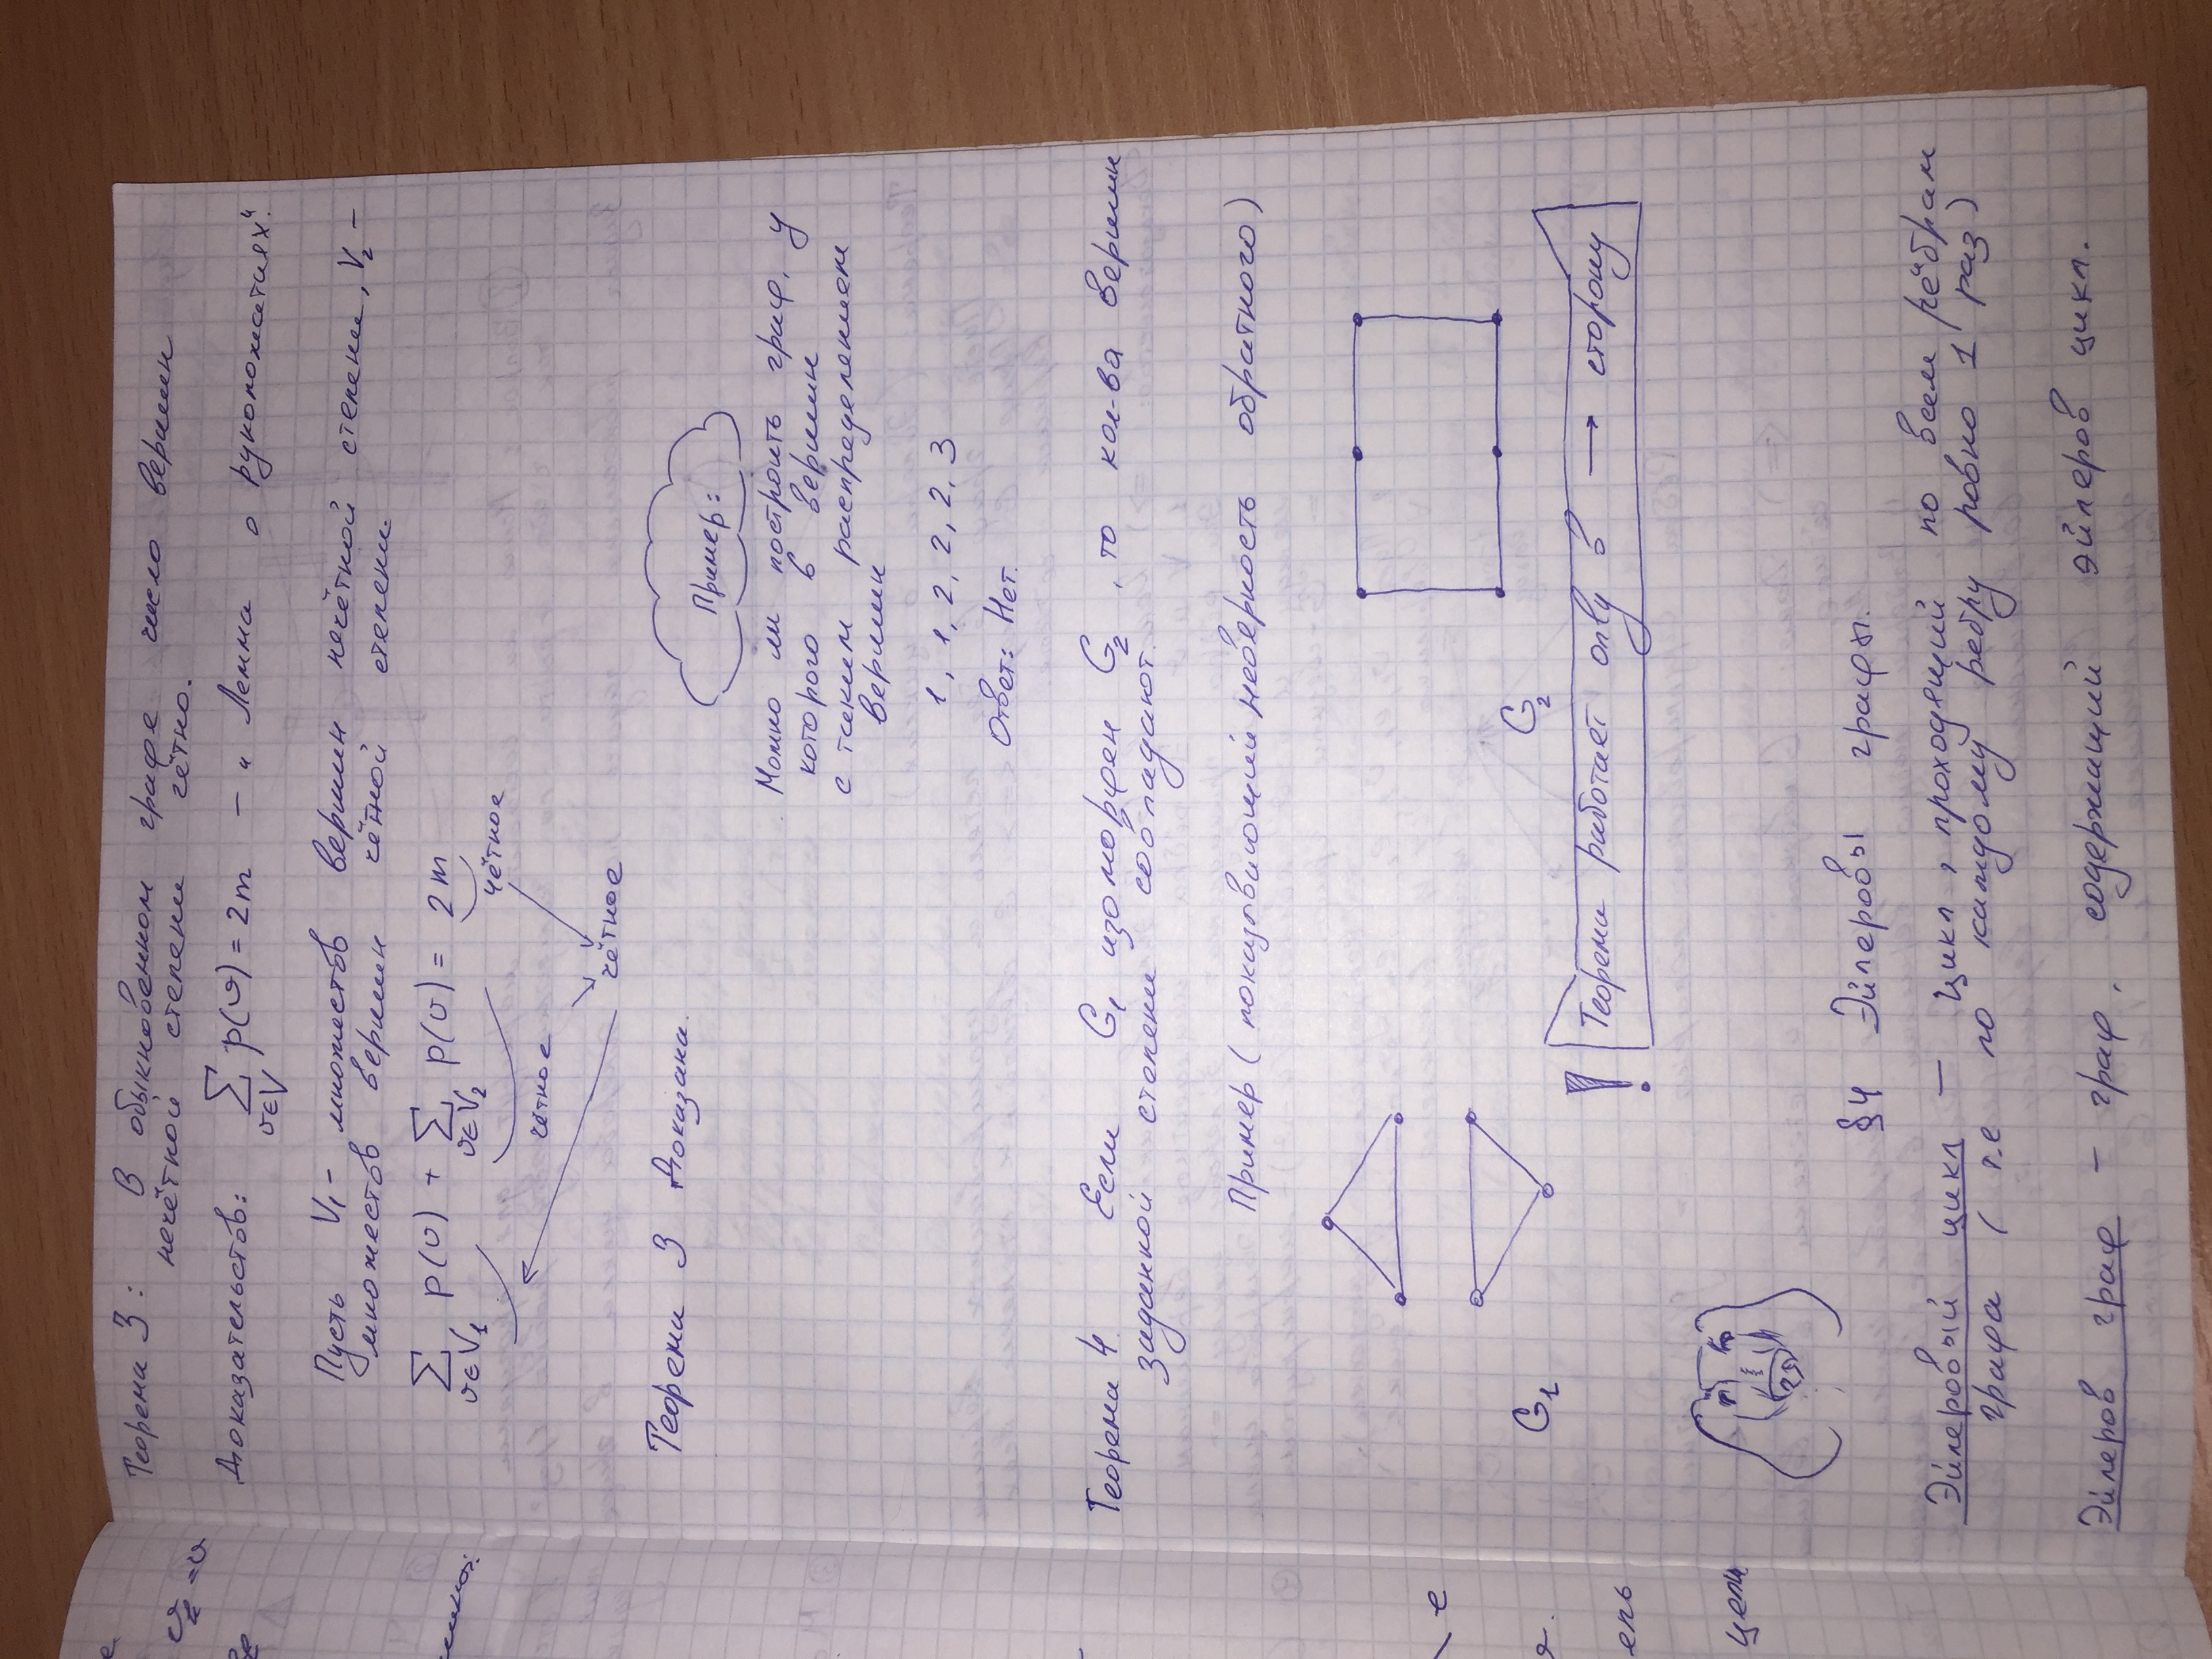 Теорема 3: В обыкновенном графе число вершин
нечётной степени чётно.
Доказательство: ∑ p(v) = 2m – "Лемма о рукопожатиях"
v∈V
Пусть V₁ – множество вершин нечётной степени, V₂ –
множество вершин чётной степени.
∑ p(v) + ∑ p(v) = 2m
v∈V₁ v∈V₂
чётное
чётное
чётное
Теорема 3 доказана.
Пример:
Можно ли построить граф, у
которого 6 вершин
с таким распределением
вершин
1, 1, 2, 2, 2, 3
Ответ: Нет.
Теорема 4 Если G₁ изоморфен G₂, то кол-ва вершин
заданной степени совпадают.
Пример (показывающий неверность обратного)
G₁
G₂
! Теорема работает only в → сторону
§4 Эйлеровы графы.
Эйлеровый цикл – цикл, проходящий по всем рёбрам
графа (т.е по каждому ребру ровно 1 раз)
Эйлеров граф – граф, содержащий эйлеров цикл.
цепи